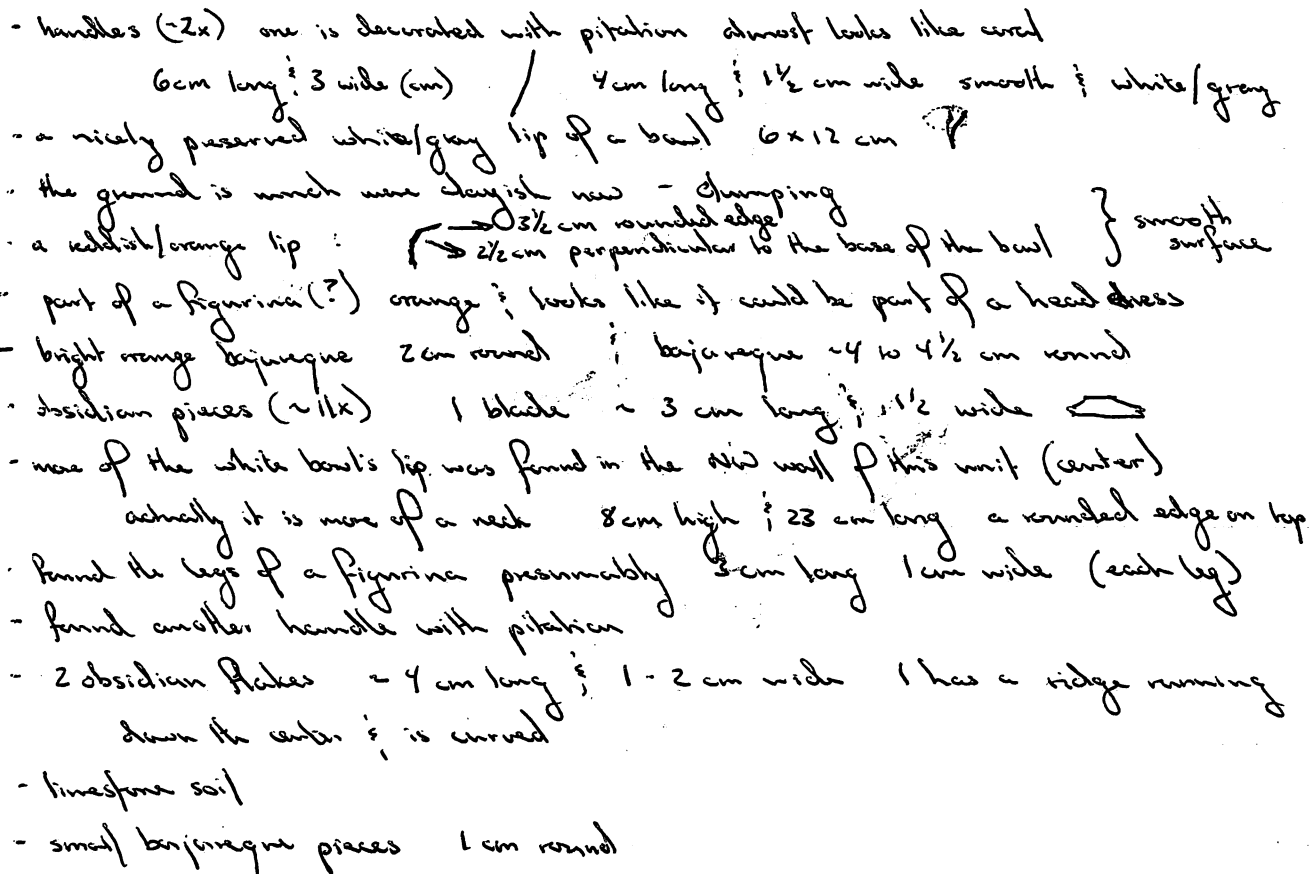 - handles (~2x) one is decorated with pitation almost looks like coral
6cm long & 3 wide (cm) 4cm long & 1½ cm wide smooth & white/gray
- a nicely preserved white/gray lip of a bowl 6 x 12 cm
- the ground is much more clayish now - clumping
- a reddish/orange lip : 3½ cm rounded edge
2½ cm perpendicular to the base of the bowl } smooth surface
- part of a figurina (?) orange & looks like it could be part of a head dress
- bright orange bajareque 2cm round & bajareque ~4 to 4½ cm round
- obsidian pieces (~11x) 1 blade ~ 3 cm long & 1½ wide
- more of the white bowl's lip was found in the NW wall of this unit (center)
actually it is more of a neck 8cm high & 23 cm long a rounded edge on top
- found the legs of a figurina presumably 3cm long 1cm wide (each leg)
- found another handle with pitation
- 2 obsidian flakes ~ 4 cm long & 1-2 cm wide 1 has a ridge running
down the center & is curved
- limestone soil
- small bajareque pieces 1 cm round